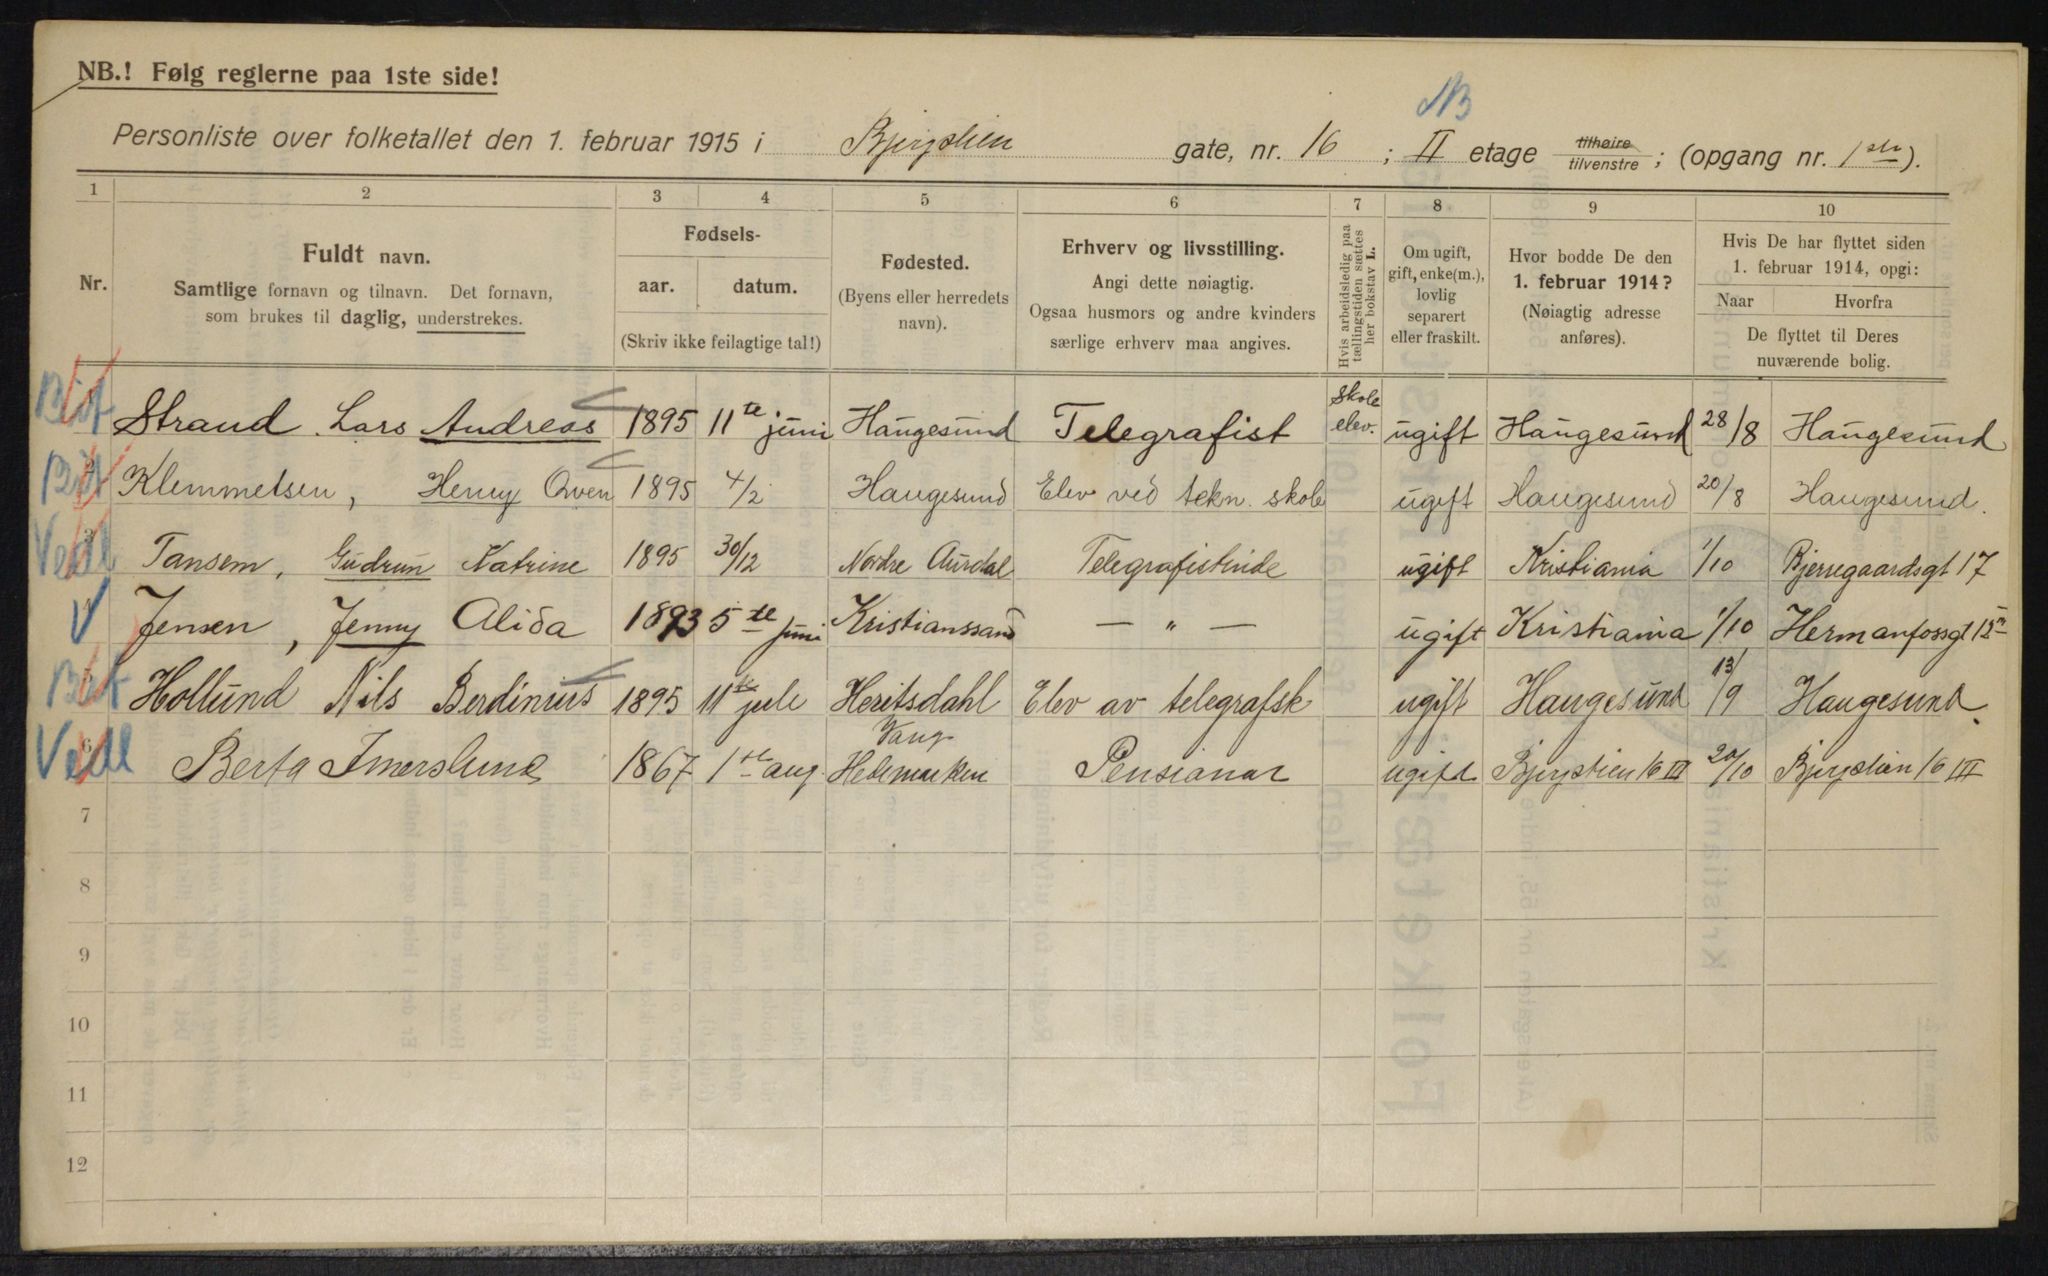 NB.! Følg reglerne paa 1ste side!
NB
Personliste over folketallet den 1. februar 1915 i Bjergstien gate, nr. 16 ; II etage tilhøire tilvenstre ; (opgang nr. 1 ).
1 2 3 4 5 6 7 8 9 10
Nr.
Fuldt navn.
Samtlige fornavn og tilnavn. Det fornavn,
som brukes til daglig, understrekes.
Fødsels-
aar. datum.
(Skriv ikke feilagtige tal!)
Fødested.
(Byens eller herredets
navn).
Erhverv og livsstilling.
Angi dette nøiagtig.
Ogsaa husmors og andre kvinders
særlige erhverv maa angives.
Hvis arbeidsledig paa
tællingstiden sættes
her bokstav L.
Om ugift,
gift, enke(m.),
lovlig
separert
eller fraskilt.
Hvor bodde De den
1. februar 1914?
(Nøiagtig adresse
anføres).
Hvis De har flyttet siden
1. februar 1914, opgi:
Naar Hvorfra
De flyttet til Deres
nuværende bolig.
Strand Lars Andreas 1895 11te juni Haugesund Telegrafist Skole elev. ugift Haugesund 28/8 Haugesund
Klemmetsen, Henry Owen 1895 4/2 Haugesund Elev ved tekn. skole ugift Haugesund 20/8 Haugesund.
Vedl 3 Tansem, Gudrun Katrine 1895 30/12 Nordre Aurdal Telegrafistinde ugift Kristiania 1/10 Bjerregaardsgt 17
V Jensen, Jenny Alida 1893 5te juni Kristianssand — " — ugift Kristiania 1/10 Hermanfossgt 12
Hollund Nils Berdinius 1895 11te jule Heritsdahl Elev av telegrafsk ugift Haugesund 13/9 Haugesund.
Vedl 6 Berta Imerslund 1867 1te aug. Vang Hedemarken Pensianar ugift Bjergstien 16 III 20/10 Bjergstien 16 III
7
8
9
10
11
12